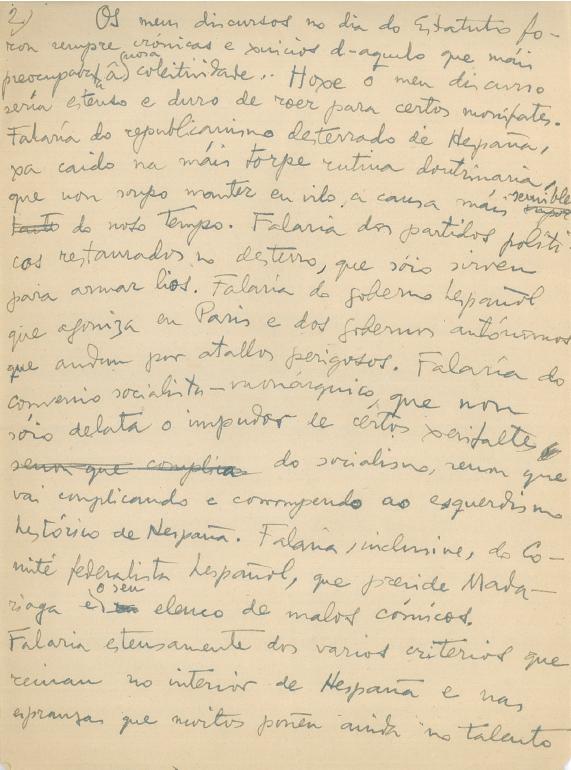 2)
Os meus discursos no dia do Estatuto fo-
ron sempre crónicas e xuicios d-aquelo que máis
preocupaba â nosa coleitividade.. Hoxe o meu discurso
sería estenso e duro de roer para certos monifates.
Falaría do republicanismo desterrado de Hespaña,
xa caido na máis torpe rutina doutrinaria,
que non soupo manter en vilo a causa máis sensible
do noso tempo. Falaría dos partidos políti-
cos restaurados no desterro, que sóio sirven
para armar lios. Falaría do goberno hespañol
que agoniza en Paris e dos gobernos autónomos
que andan por atallos perigosos. Falaría do
convenio socialista-monárquico, que non
sóio delata o impudor de certos xerifaltes
senon que complica do socialismo, senon que
vai complicando e corrompendo ao esquerdismo
histórico de Hespaña. Falaría, inclusive, do Co-
mité federalista hespañol, que preside Mada-
riaga e o seu elenco de malos cómicos.
Falaria estensamente dos varios criterios que
reinan no interior de Hespaña e nas
espranzas que moitos poñen ainda no talento